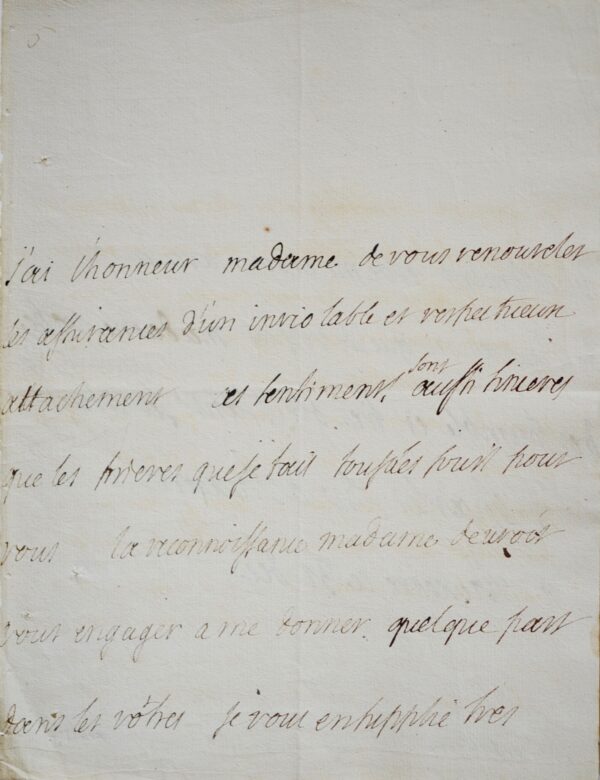 J'ai lhonneur madame de vous renouveler
les assurances d'un inviolable et respectueux
attachement ces sentiments sont aussi sinceres
que les prieres que je fais tous les jours pour
vous la reconnoissance madame devroit
vous engager a me donner quelque part
dans les vôtres je vous en supplie tres